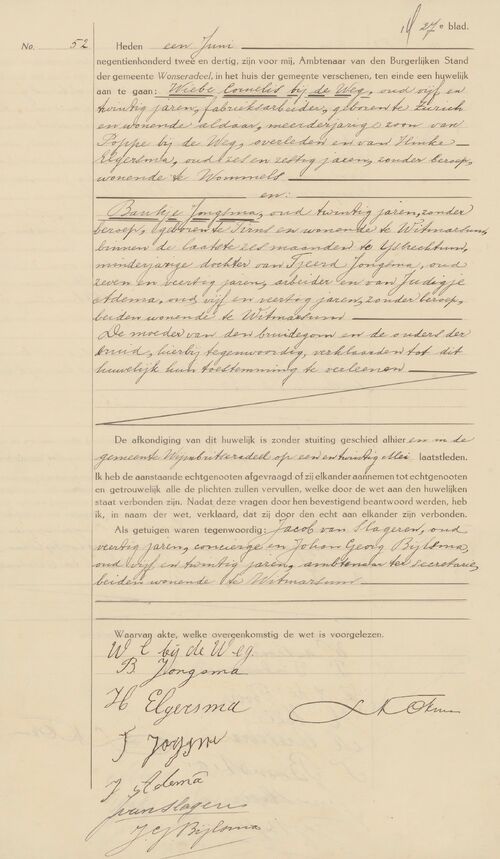 27e blad.
No. 52
Heden een Juni
negentienhonderd twee en dertig, zijn voor mij, Ambtenaar van den Burgerlijken Stand
der gemeente Wonseradeel, in het huis der gemeente verschenen, ten einde een huwelijk
aan te gaan: Wiebe Cornelis bij de Weg, oud vijf en
twintig jaren, fabrieksarbeider, geboren te Zurich
en wonende aldaar, meerderjarige zoon van
Poppe bij de Weg, overleden en van Hinke
Elgersma, oud zes en zestig jaren, zonder beroep,
wonende te Wommels
en:
Baukje Jongsma, oud twintig jaren, zonder
beroep, geboren te Tirns en wonende te Witmarsum,
binnen de laatste zes maanden te Ysbrechtum,
minderjarige dochter van Tjeerd Jongsma, oud
zeven en veertig jaren, arbeider en van Judigje
Adema, oud vijf en veertig jaren, zonder beroep,
beiden wonende te Witmarsum
De moeder van den bruidegom en de ouders der
bruid, hierbij tegenwoordig, verklaarden tot dit
huwelijk hun toestemming te verleenen
De afkondiging van dit huwelijk is zonder stuiting geschied alhier en in de
gemeente Wymbritseradeel op een en twintig Mei laatstleden.
Ik heb de aanstaande echtgenooten afgevraagd of zij elkander aannemen tot echtgenooten
en getrouwelijk alle de plichten zullen vervullen, welke door de wet aan den huwelijken
staat verbonden zijn. Nadat deze vragen door hen bevestigend beantwoord werden, heb
ik, in naam der wet, verklaard, dat zij door den echt aan elkander zijn verbonden.
Als getuigen waren tegenwoordig: Jacob van Slageren, oud
veertig jaren, concierge en Johan Georg Bijlsma,
oud vijf en twintig jaren, ambtenaar ter secretarie,
beiden wonende te Witmarsum
Waarvan akte, welke overeenkomstig de wet is voorgelezen.
W C bij de Weg
B Jongsma
H Elgersma
T Jongsma
J Adema
J van Slageren
J.G. Bijlsma